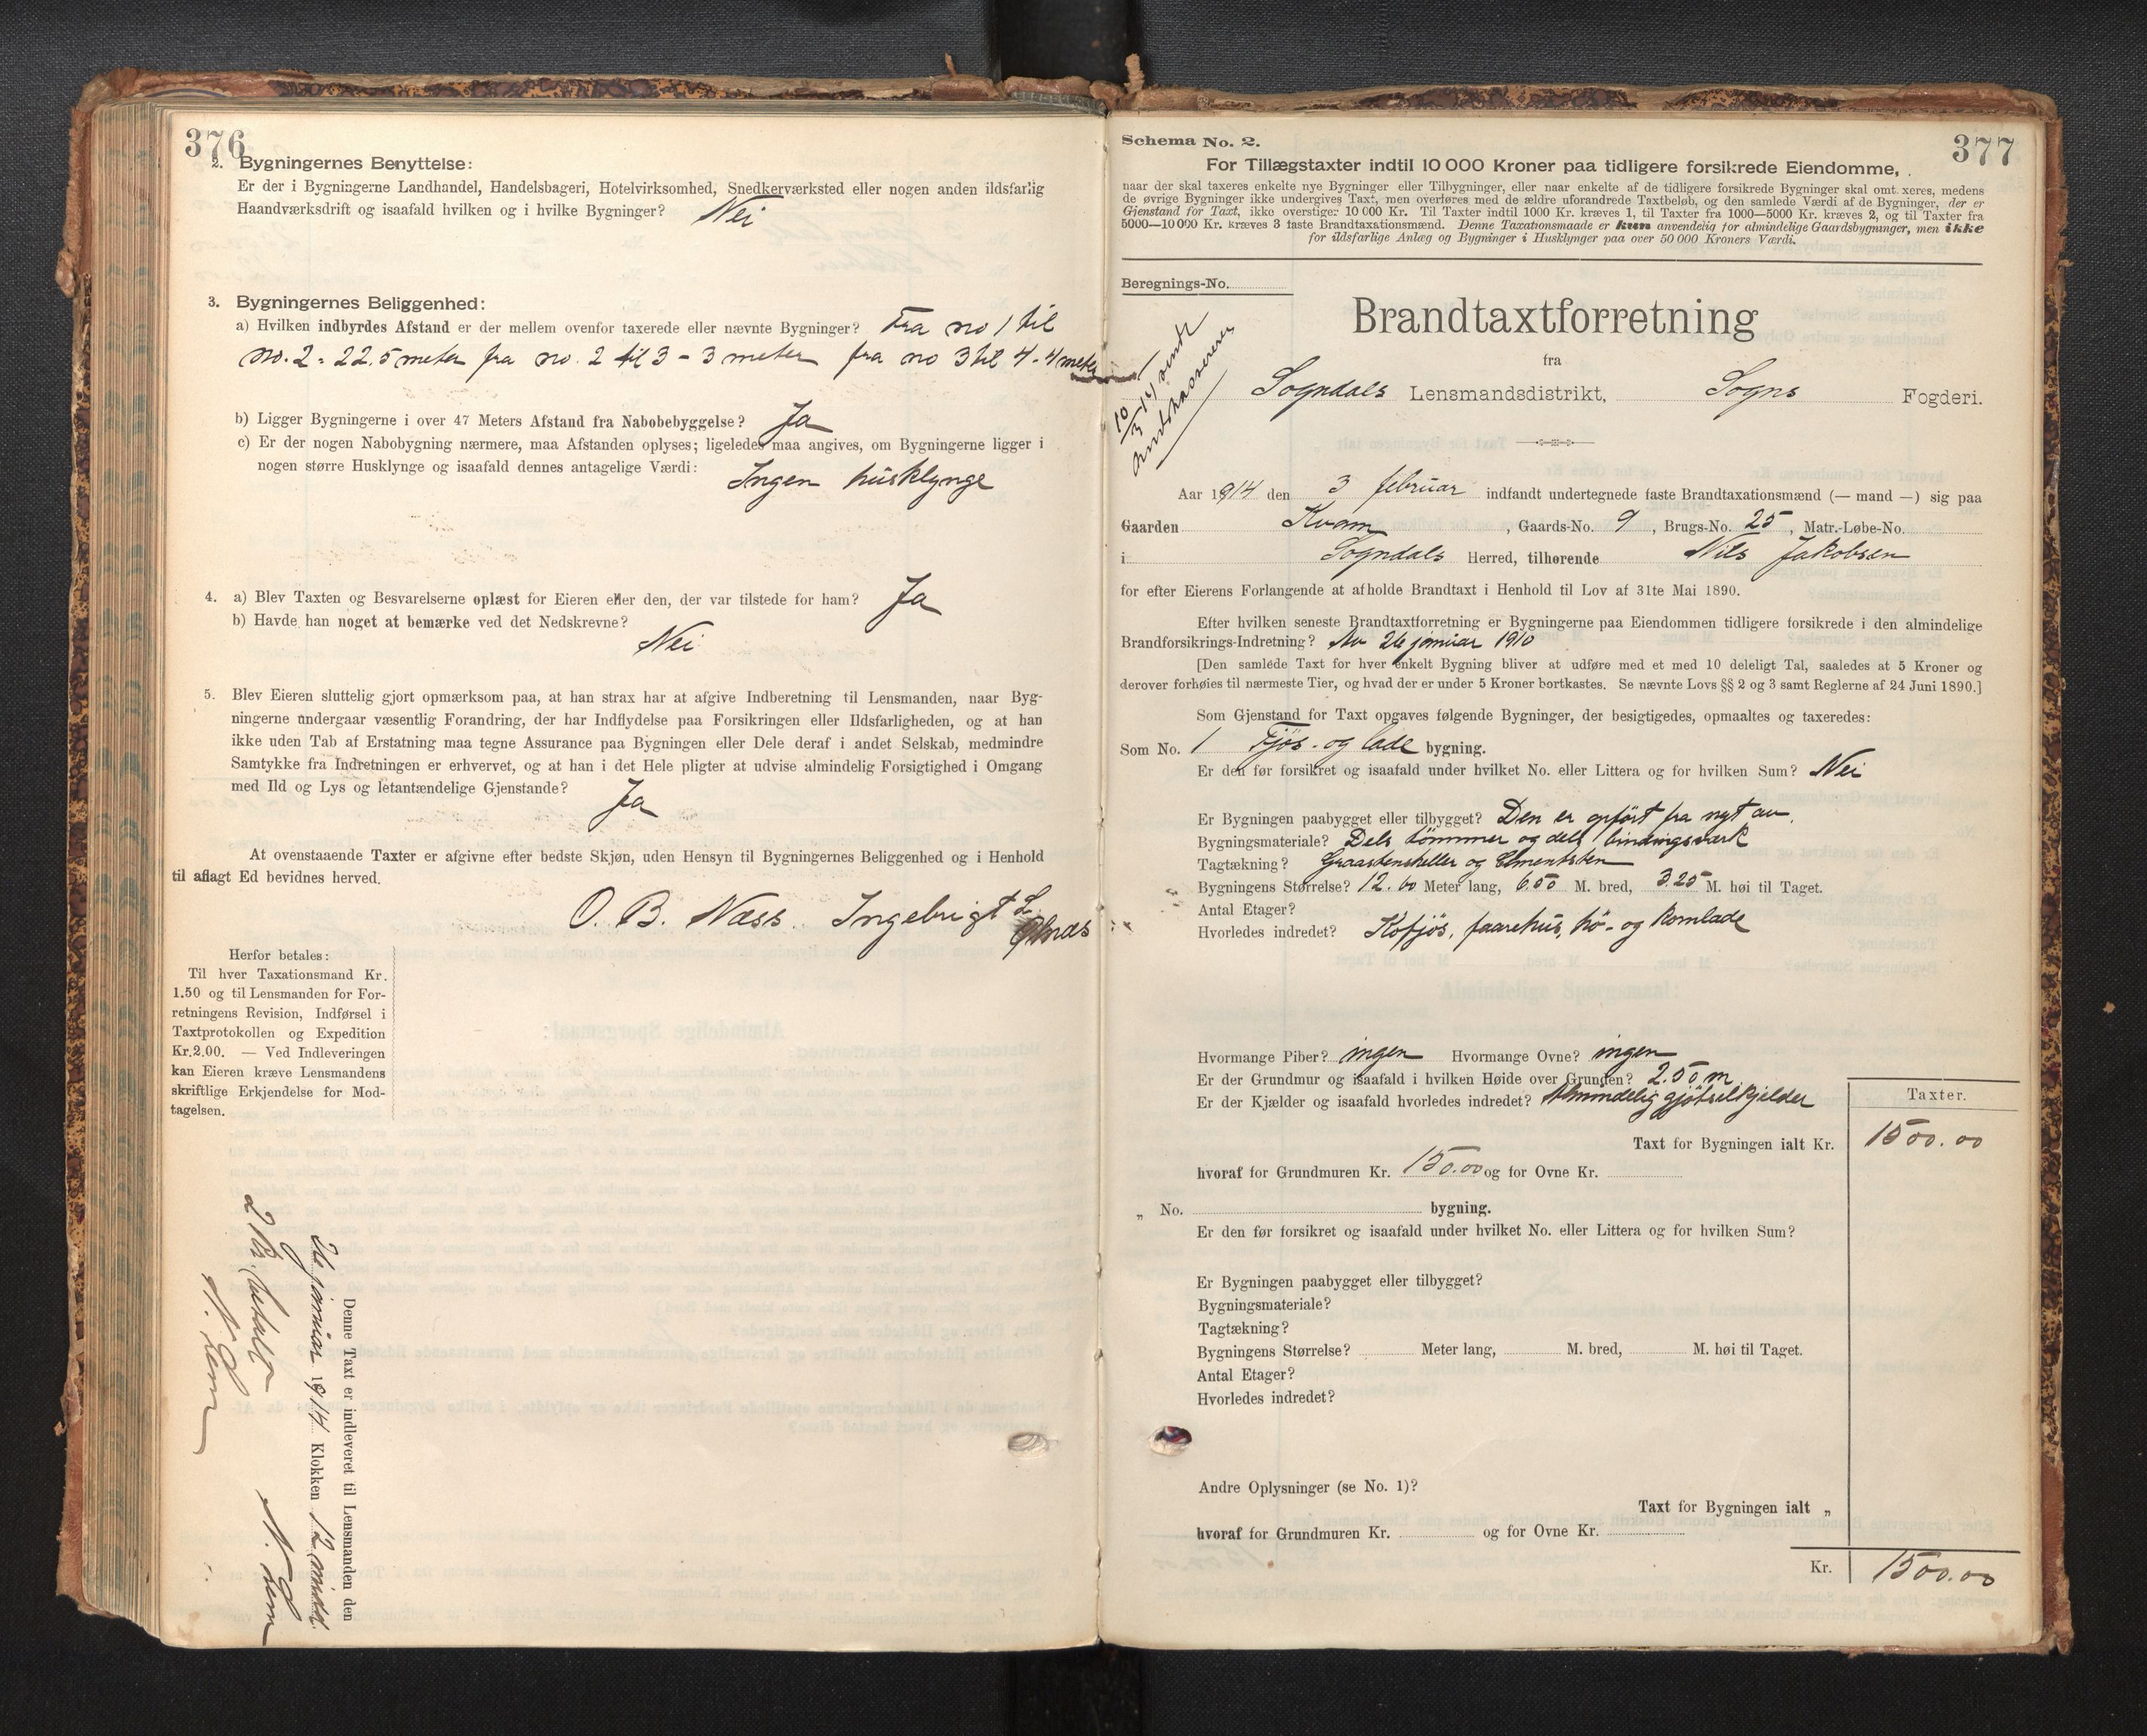 376
2. Bygningernes Benyttelse:
Er der i Bygningerne Landhandel, Handelsbageri, Hotelvirksomhed, Snedkerværksted eller nogen anden ildsfarlig
Haandværksdrift og isaafald hvilken og i hvilke Bygninger? Nei
3. Bygningernes Beliggenhed:
a) Hvilken indbyrdes Afstand er der mellem ovenfor taxerede eller nævnte Bygninger? Fra no 1 til
no. 2 = 22.5 meter fra no. 2 til 3 - 3 meter fra no 3 til 4 - 4 meter
b) Ligger Bygningerne i over 47 Meters Afstand fra Nabobebyggelse? Ja
c) Er der nogen Nabobygning nærmere, maa Afstanden oplyses; ligeledes maa angives, om Bygningerne ligger i
nogen større Husklynge og isaafald dennes antagelige Værdi: Ingen husklynge
4. a) Blev Taxten og Besvarelserne oplæst for Eieren eller den, der var tilstede for ham? Ja
b) Havde han noget at bemærke ved det Nedskrevne?
Nei
5. Blev Eieren sluttelig gjort opmærksom paa, at han strax har at afgive Indberetning til Lensmanden, naar Byg-
ningerne undergaar væsentlig Forandring, der har Indflydelse paa Forsikringen eller Ildsfarligheden, og at han
ikke uden Tab af Erstatning maa tegne Assurance paa Bygningen eller Dele deraf i andet Selskab, medmindre
Samtykke fra Indretningen er erhvervet, og at han i det Hele pligter at udvise almindelig Forsigtighed i Omgang
med Ild og Lys og letantændelige Gjenstande? Ja
At ovenstaaende Taxter er afgivne efter bedste Skjøn, uden Hensyn til Bygningernes Beliggenhed og i Henhold
til aflagt Ed bevidnes herved.
O. B. Næss. Ingebrigt L.
Herfor betales:
Til hver Taxationsmand Kr.
1.50 og til Lensmanden for For-
retningens Revision, Indførsel i
Taxtprotokollen og Expedition
Kr. 2.00. — Ved Indleveringen
kan Eieren kræve Lensmandens
skriftlige Erkjendelse for Mod-
tagelsen.
Denne Taxt er indleveret til Lensmanden den
26 januar 1914 Klokken 12 midd.
N. Sem
2 Kr. betalt
N. Sem
Schema No. 2.
377
For Tillægstaxter indtil 10 000 Kroner paa tidligere forsikrede Eiendomme,
naar der skal taxeres enkelte nye Bygninger eller Tilbygninger, eller naar enkelte af de tidligere forsikrede Bygninger skal omt xeres, medens
de øvrige Bygninger ikke undergives Taxt, men overføres med de ældre uforandrede Taxtbeløb, og den samlede Værdi af de Bygninger, der er
Gjenstand for Taxt, ikke overstiger 10 000 Kr. Til Taxter indtil 1000 Kr. kræves 1, til Taxter fra 1000—5000 Kr. kræves 2, og til Taxter fra
5000—10 000 Kr. kræves 3 faste Brandtaxationsmænd. Denne Taxationsmaade er kun anvendelig for almindelige Gaardsbygninger, men ikke
for ildsfarlige Anlæg og Bygninger i Husklynger paa over 50 000 Kroners Værdi.
Beregnings-No.
Brandtaxtforretning
fra
Sogndals Lensmandsdistrikt, Sogns Fogderi.
10/3-14 sendt
Aar 1914 den 3 februar indfandt undertegnede faste Brandtaxationsmænd (— mand —) sig paa
Gaarden Kvam, Gaards-No. 9, Brugs-No. 25, Matr.-Løbe-No.
i Sogndals Herred, tilhørende Nils Jakobsen
for efter Eierens Forlangende at afholde Brandtaxt i Henhold til Lov af 31te Mai 1890.
Efter hvilken seneste Brandtaxtforretning er Bygningerne paa Eiendommen tidligere forsikrede i den almindelige
Brandforsikrings-Indretning? Av 26 januar 1910
[Den samlede Taxt for hver enkelt Bygning bliver at udføre med et med 10 deleligt Tal, saaledes at 5 Kroner og
derover forhøies til nærmeste Tier, og hvad der er under 5 Kroner bortkastes. Se nævnte Lovs §§ 2 og 3 samt Reglerne af 24 Juni 1890.]
Som Gjenstand for Taxt opgaves følgende Bygninger, der besigtigedes, opmaaltes og taxeredes:
Som No. 1 Fjøs- og lade bygning.
Er den før forsikret og isaafald under hvilket No. eller Littera og for hvilken Sum? Nei
Er Bygningen paabygget eller tilbygget? Den er opført fra nyt av.
Bygningsmateriale? Dels tømmer og dels bindingsværk
Tagtækning? Graastenskeller og Cementsten
Bygningens Størrelse? 12.60 Meter lang, 6.50 M. bred, 3.25 M. høi til Taget.
Antal Etager?
Hvorledes indredet? Kofjøs, faarehus, hø- og kornlade
Hvormange Piber? ingen Hvormange Ovne? ingen
Er der Grundmur og isaafald i hvilken Høide over Grunden? 2.50 m
Er der Kjælder og isaafald hvorledes indredet? Almindelig gjødselkjelder
Taxter.
Taxt for Bygningen ialt Kr. 1500.00
hvoraf for Grundmuren Kr. 150.00 og for Ovne Kr.
„ No. bygning.
Er den før forsikret og isaafald under hvilket No. eller Littera og for hvilken Sum?
Er Bygningen paabygget eller tilbygget?
Bygningsmateriale?
Tagtækning?
Bygningens Størrelse? Meter lang, M. bred, M. høi til Taget.
Antal Etager?
Hvorledes indredet?
Andre Oplysninger (se No. 1)?
Taxt for Bygningen ialt „
hvoraf for Grundmuren Kr. og for Ovne Kr.
Kr. 1500.00